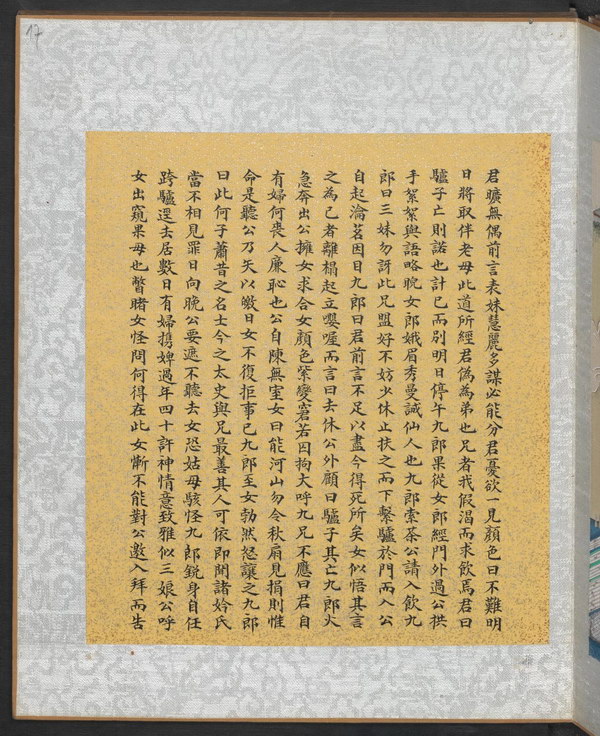 17
君曠無偶前言表妹慧麗多謀必能分君憂欲一見顏色曰不難明
日將取伴老母此道所經君偽為弟也兄者我假渴而求飲焉君曰
驢子亡則諾也計已而別明日停午九郎果從女郎經門外過公拱
手絮絮與語略睨女郎娥眉秀曼誠仙人也九郎索茶公請入飲九
郎曰三妹勿訝此兄盟好不妨少休止扶之而下繫驢於門而入公
自起瀹茗因目九郎曰君前言不足以盡今得死所矣女似悟其言
之為己者離榻起立嚶喔而言曰去休公外顧曰驢子其亡九郎火
急奔出公擁女求合女顏色紫變窘若囚拘大呼九兄不應曰君自
有婦何喪人廉恥也公自陳無室女曰能河山勿令秋扇見捐則惟
命是聽公乃矢以皦日女不復拒事已九郎至女勃然怒讓之九郎
曰此何子蕭昔之名士今之太史與兄最善其人可依即聞諸妗氏
當不相見罪日向晚公要遮不聽去女恐姑母駭怪九郎銳身自任
跨驢逕去居數日有婦攜婢過年四十許神情意致雅似三娘公呼
女出窺果母也瞥睹女怪問何得在此女慚不能對公邀入拜而告